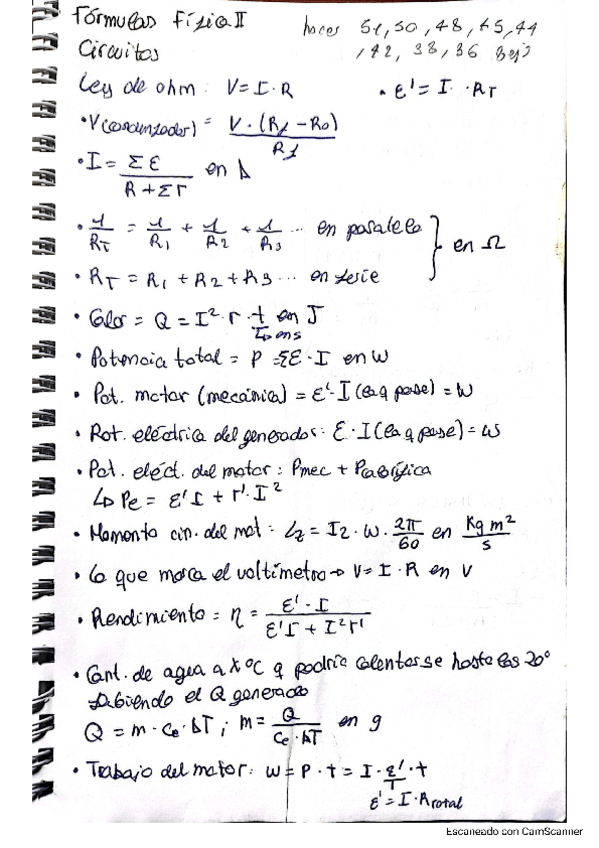 Fórmulas Física II
hacer 51, 50, 48, 45, 44
, 42, 38, 36 Bej
Circuitos
Ley de ohm: V = I · R
· ε' = I · R_T
· V(condensador) = V · (R_f - R_0) / R_f
· I = Σε / (R + Σr) en A
· 1/R_T = 1/R_1 + 1/R_2 + 1/R_3 ... en paralelo
} en Ω
· R_T = R_1 + R_2 + R_3 ... en serie
· Calor = Q = I² · r · t en J
↳ en s
· Potencia total = P = Σε · I en W
· Pot. motor (mecánica) = ε' · I (la q pase) = W
· Pot. eléctrica del generador: ε · I (la q pase) = W
· Pot. eléct. del motor: Pmec + Pcalorífica
↳ Pe = ε'I + r' · I²
· Momento cin. del mot: L_z = I_z · w · 2π/60 en Kg m²/s
· Lo que marca el voltímetro → V = I · R en V
· Rendimiento = η = ε' · I / (ε'I + I²r')
· Cant. de agua a X ºC q podría calentarse hasta los 20º
debiendo el Q generado
Q = m · Ce · ΔT ; m = Q / (Ce · ΔT) en g
· Trabajo del motor: W = P · t = I · ε' · t
ε' = I · R total
Escaneado con CamScanner